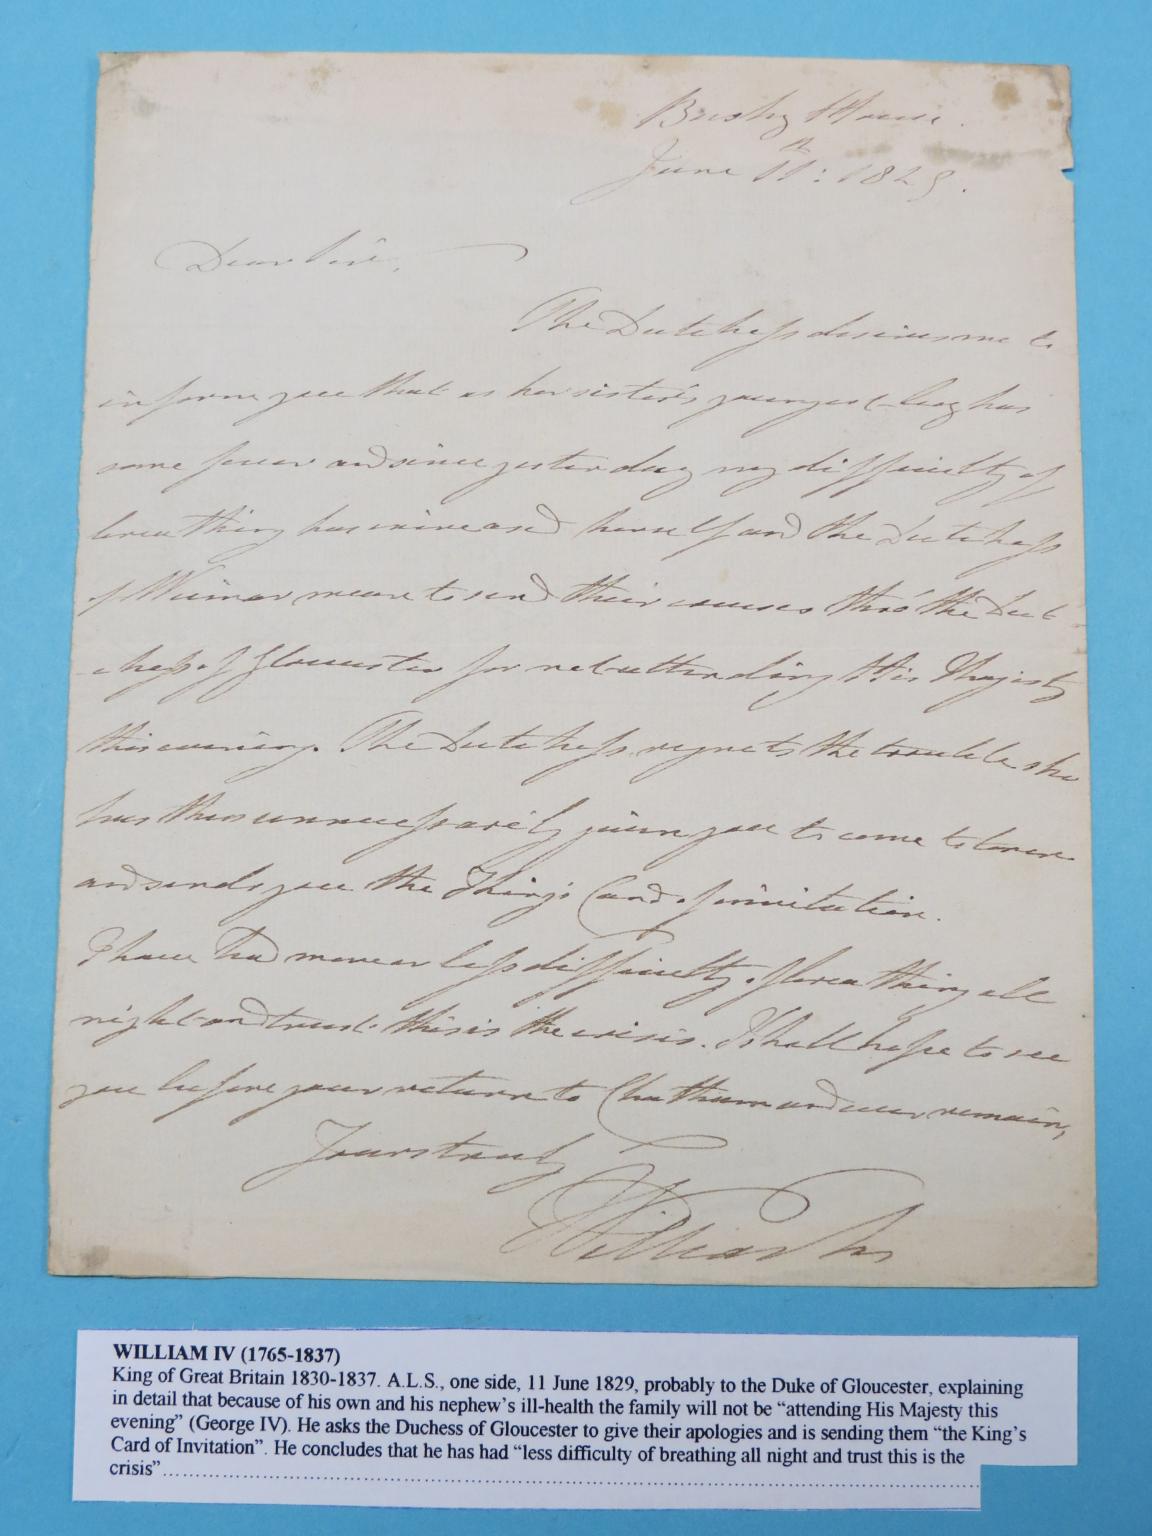 Bushy House.
June 11th: 1829.
Dear Sir,
The Dutchess desires me to
inform you that as her sister's youngest boy has
some fever and since yesterday my difficulty of
breathing has increased herself and the Dutchess
of Weimar mean to send their excuses thro' the Dut-
-chess of Gloucester for not attending His Majesty
this evening. The Dutchess regrets the trouble she
has thus unnecessarily given you to come to town
and sends you the King's Card of invitation.
I have had more or less difficulty of breathing all
night and trust this is the crisis. I shall hope to see
you before your return to Chatham and ever remain,
Yours truly
William
WILLIAM IV (1765-1837)
King of Great Britain 1830-1837. A.L.S., one side, 11 June 1829, probably to the Duke of Gloucester, explaining
in detail that because of his own and his nephew's ill-health the family will not be “attending His Majesty this
evening” (George IV). He asks the Duchess of Gloucester to give their apologies and is sending them “the King's
Card of Invitation”. He concludes that he has had “less difficulty of breathing all night and trust this is the
crisis”......................................................................................................